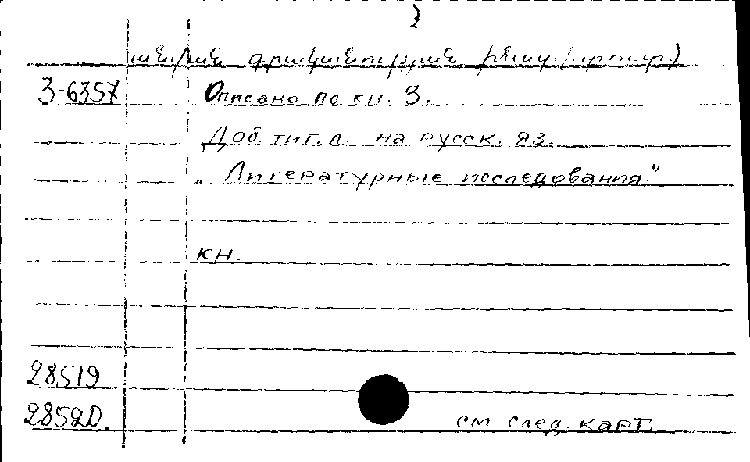 2
3-6357 Описано по кн. 3.
Доб. тит. л. на русск. яз.
„Литературные последования"
кн.
28519
28520.
см. след. карт.